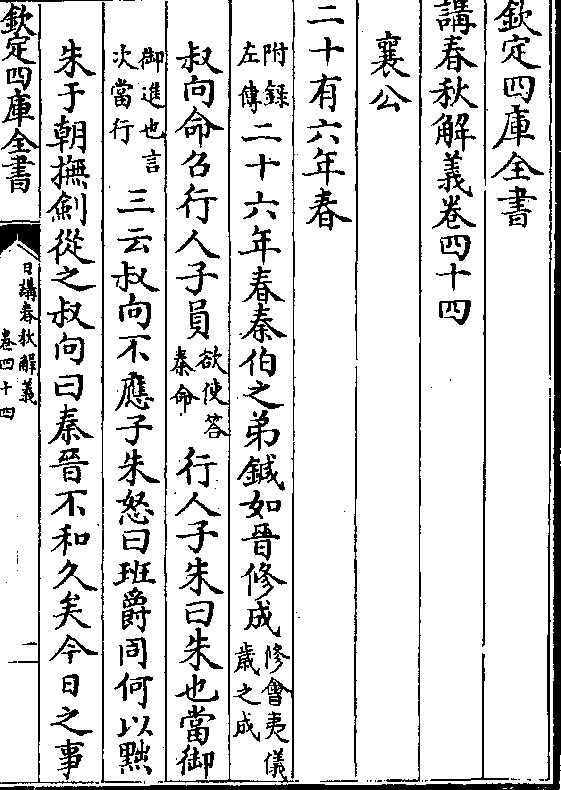 欽定四庫全書
講春秋解義卷四十四
襄公
二十有六年春
附錄左傳二十六年春秦伯之弟鍼如晉修成修會夷儀歲之成
叔向命召行人子員欲使答秦命行人子朱曰朱也當御
御進也言次當行三云叔向不應子朱怒曰班爵同何以黜
朱于朝撫劍從之叔向曰秦晉不和久矣今日之事
欽定四庫全書
日講春秋解義
卷四十四
二